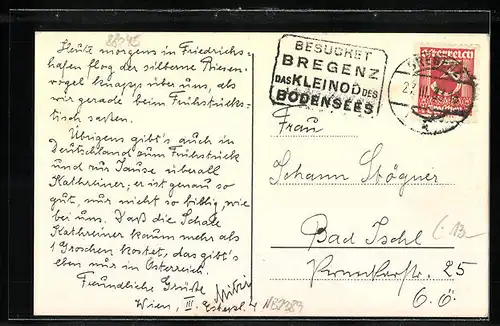 28245
Heute morgens in Friedrichs-
hafen flog der silberne Riesen-
vogel knapp über uns, als
wir gerade beim Frühstücks-
tisch saßen.
Übrigens gibt's auch in
Deutschland zum Frühstück
und zur Jause überall
Kathreiner, er ist genau so
gut, nur nicht so billig wie
bei uns. Daß die Schale
Kathreiner kaum mehr als
1 Groschen kostet, das gibt's
eben nur in Österreich.
Freundliche Grüße
Wien, III.
BESUCHET
BREGENZ
DAS KLEINOD DES
BODENSEES
Österreich
BREGENZ
Frau
Johann Stögner
Bad Ischl
25
O.Ö